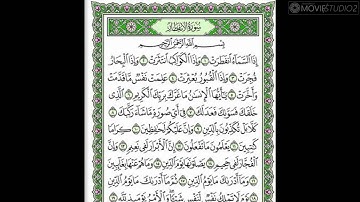 MOVIESTUDIOZ
سورة الانفطار
بسم الله الرحمن الرحيم
إذا السماء انفطرت ١ وإذا الكواكب انتثرت ٢ وإذا البحار
فجرت ٣ وإذا القبور بعثرت ٤ علمت نفس ما قدمت
وأخرت ٥ يأيها الإنسن ما غرك بربك الكريم ٦ الذي
خلقك فسوىك فعدلك ٧ في أي صورة ما شاء ركبك ٨
كلا بل تكذبون بالدين ٩ وإن عليكم لحفظين ١٠ كراما
كتبين ١١ يعلمون ما تفعلون ١٢ إن الأبرار لفي نعيم ١٣ وإن
الفجار لفي جحيم ١٤ يصلونها يوم الدين ١٥ وما هم عنها بغائبين
١٦ وما أدرىك ما يوم الدين ١٧ ثم ما أدرىك ما يوم الدين
١٨ يوم لا تملك نفس لنفس شيئا والأمر يومئذ لله ١٩